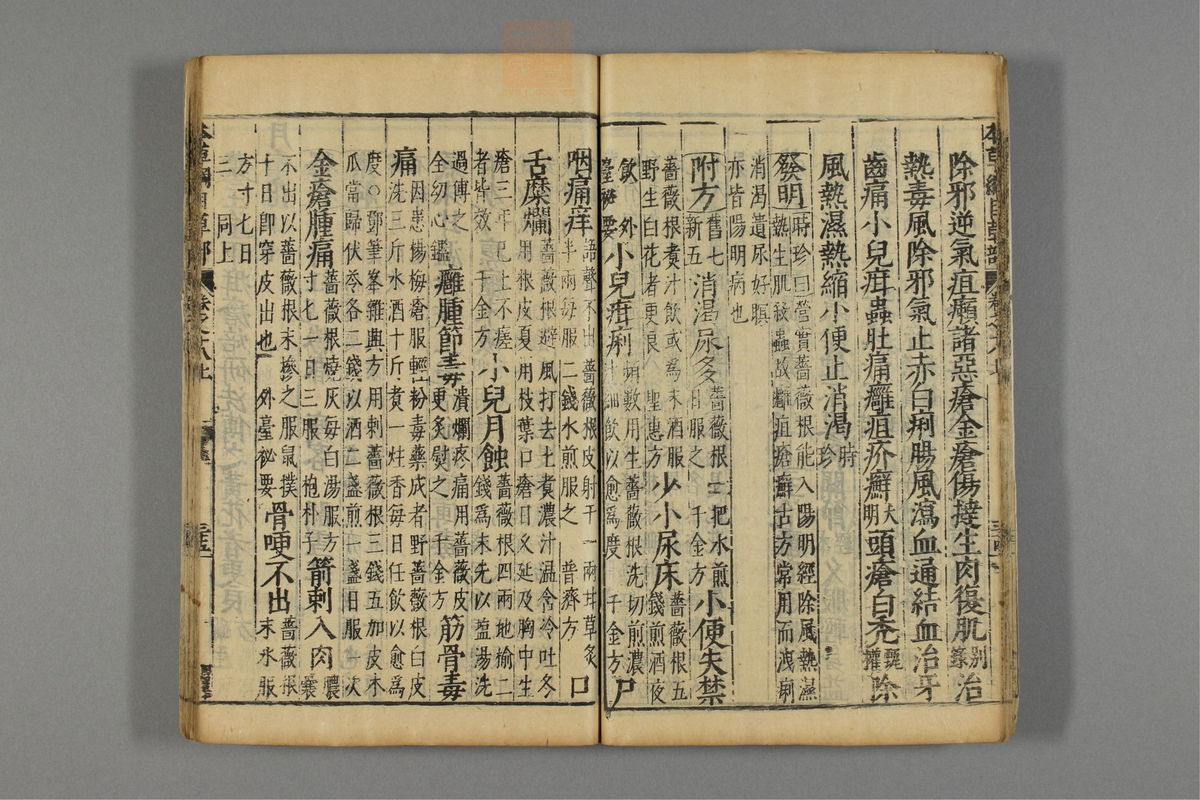 除邪逆氣疽癩諸惡瘡金瘡傷撻生肉復肌别錄治
熱毒風除邪氣止赤白痢腸風瀉血通結血治牙
齒痛小兒疳蟲肚痛癰疽疥癬大明頭瘡白禿甄權除
風熱濕熱縮小便止消渴時珍
發明時珍曰營實薔薇根能入陽明經除風熱濕
熱生肌殺蟲故癰疽瘡癬古方常用而洩痢
消渴遺尿好瞑
亦皆陽明病也
附方舊七新五消渴尿多薔薇根一把水煎日服之千金方小便失禁
薔薇根煑汁飲或為末酒服
野生白花者更良聖惠方少小尿床薔薇根五錢煎酒夜
飲外臺秘要小兒疳痢頻數用生薔薇根洗切煎濃汁細飲以愈為度千金方尸
咽痛痒語聲不出薔薇根皮射干一兩甘草炙
半兩每服二錢水煎服之普濟方口
舌糜爛薔薇根避風打去土煑濃汁温含冷吐冬
用根皮夏用枝葉口瘡日久延及胸中生
瘡三年已上不瘥
者皆效千金方小兒月蝕薔薇根四兩地榆二
錢為末先以盐湯洗
過傅之
全幼心鑑癰腫節毒潰爛疼痛用薔薇皮
更炙熨之千金方筋骨毒
痛因患楊梅瘡服輕粉毒藥成者野薔薇根白皮
洗三斤水酒十斤煑一炷香每日任飲以愈為
度○鄧筆峯雜興方用刺薔薇根三錢五加皮木
瓜當歸伏苓各二錢以酒二盞煎一盞日服一次
金瘡腫痛薔薇根燒灰每白湯服方寸匕一日三服抱朴子箭刺入肉膿囊
不出以薔薇根末摻之服鼠撲
十日卽穿皮出也外臺秘要骨哽不出薔薇根末水服
方寸七日
三同上